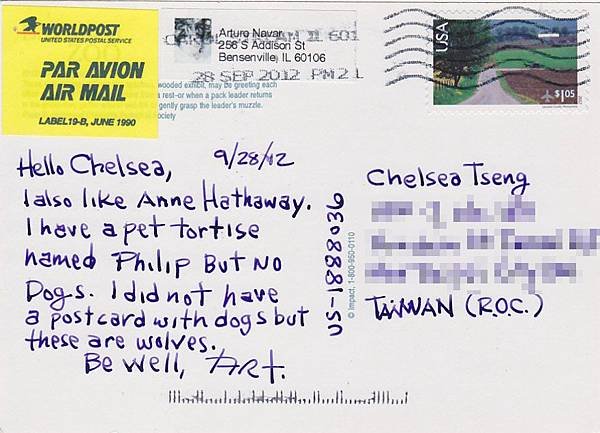 WORLDPOST
UNITED STATES POSTAL SERVICE
PAR AVION
AIR MAIL
LABEL 19-B, JUNE 1990
Arturo Navar
256 S Addison St
Bensenville, IL 60106
28 SEP 2012 PM 2 L
wooded exhibit, may be greeting each
rest-or when a pack leader returns
gently grasp the leader's muzzle.
ociety
USA
$1.05
Hello Chelsea, 9/28/12
I also like Anne Hathaway.
I have a pet tortise
named Philip But No
Dogs. I did not have
a postcard with dogs but
these are wolves.
Be well, Art.
US-1888036
© Impact, 1-800-950-0110
Chelsea Tseng
TAIWAN (R.O.C.)